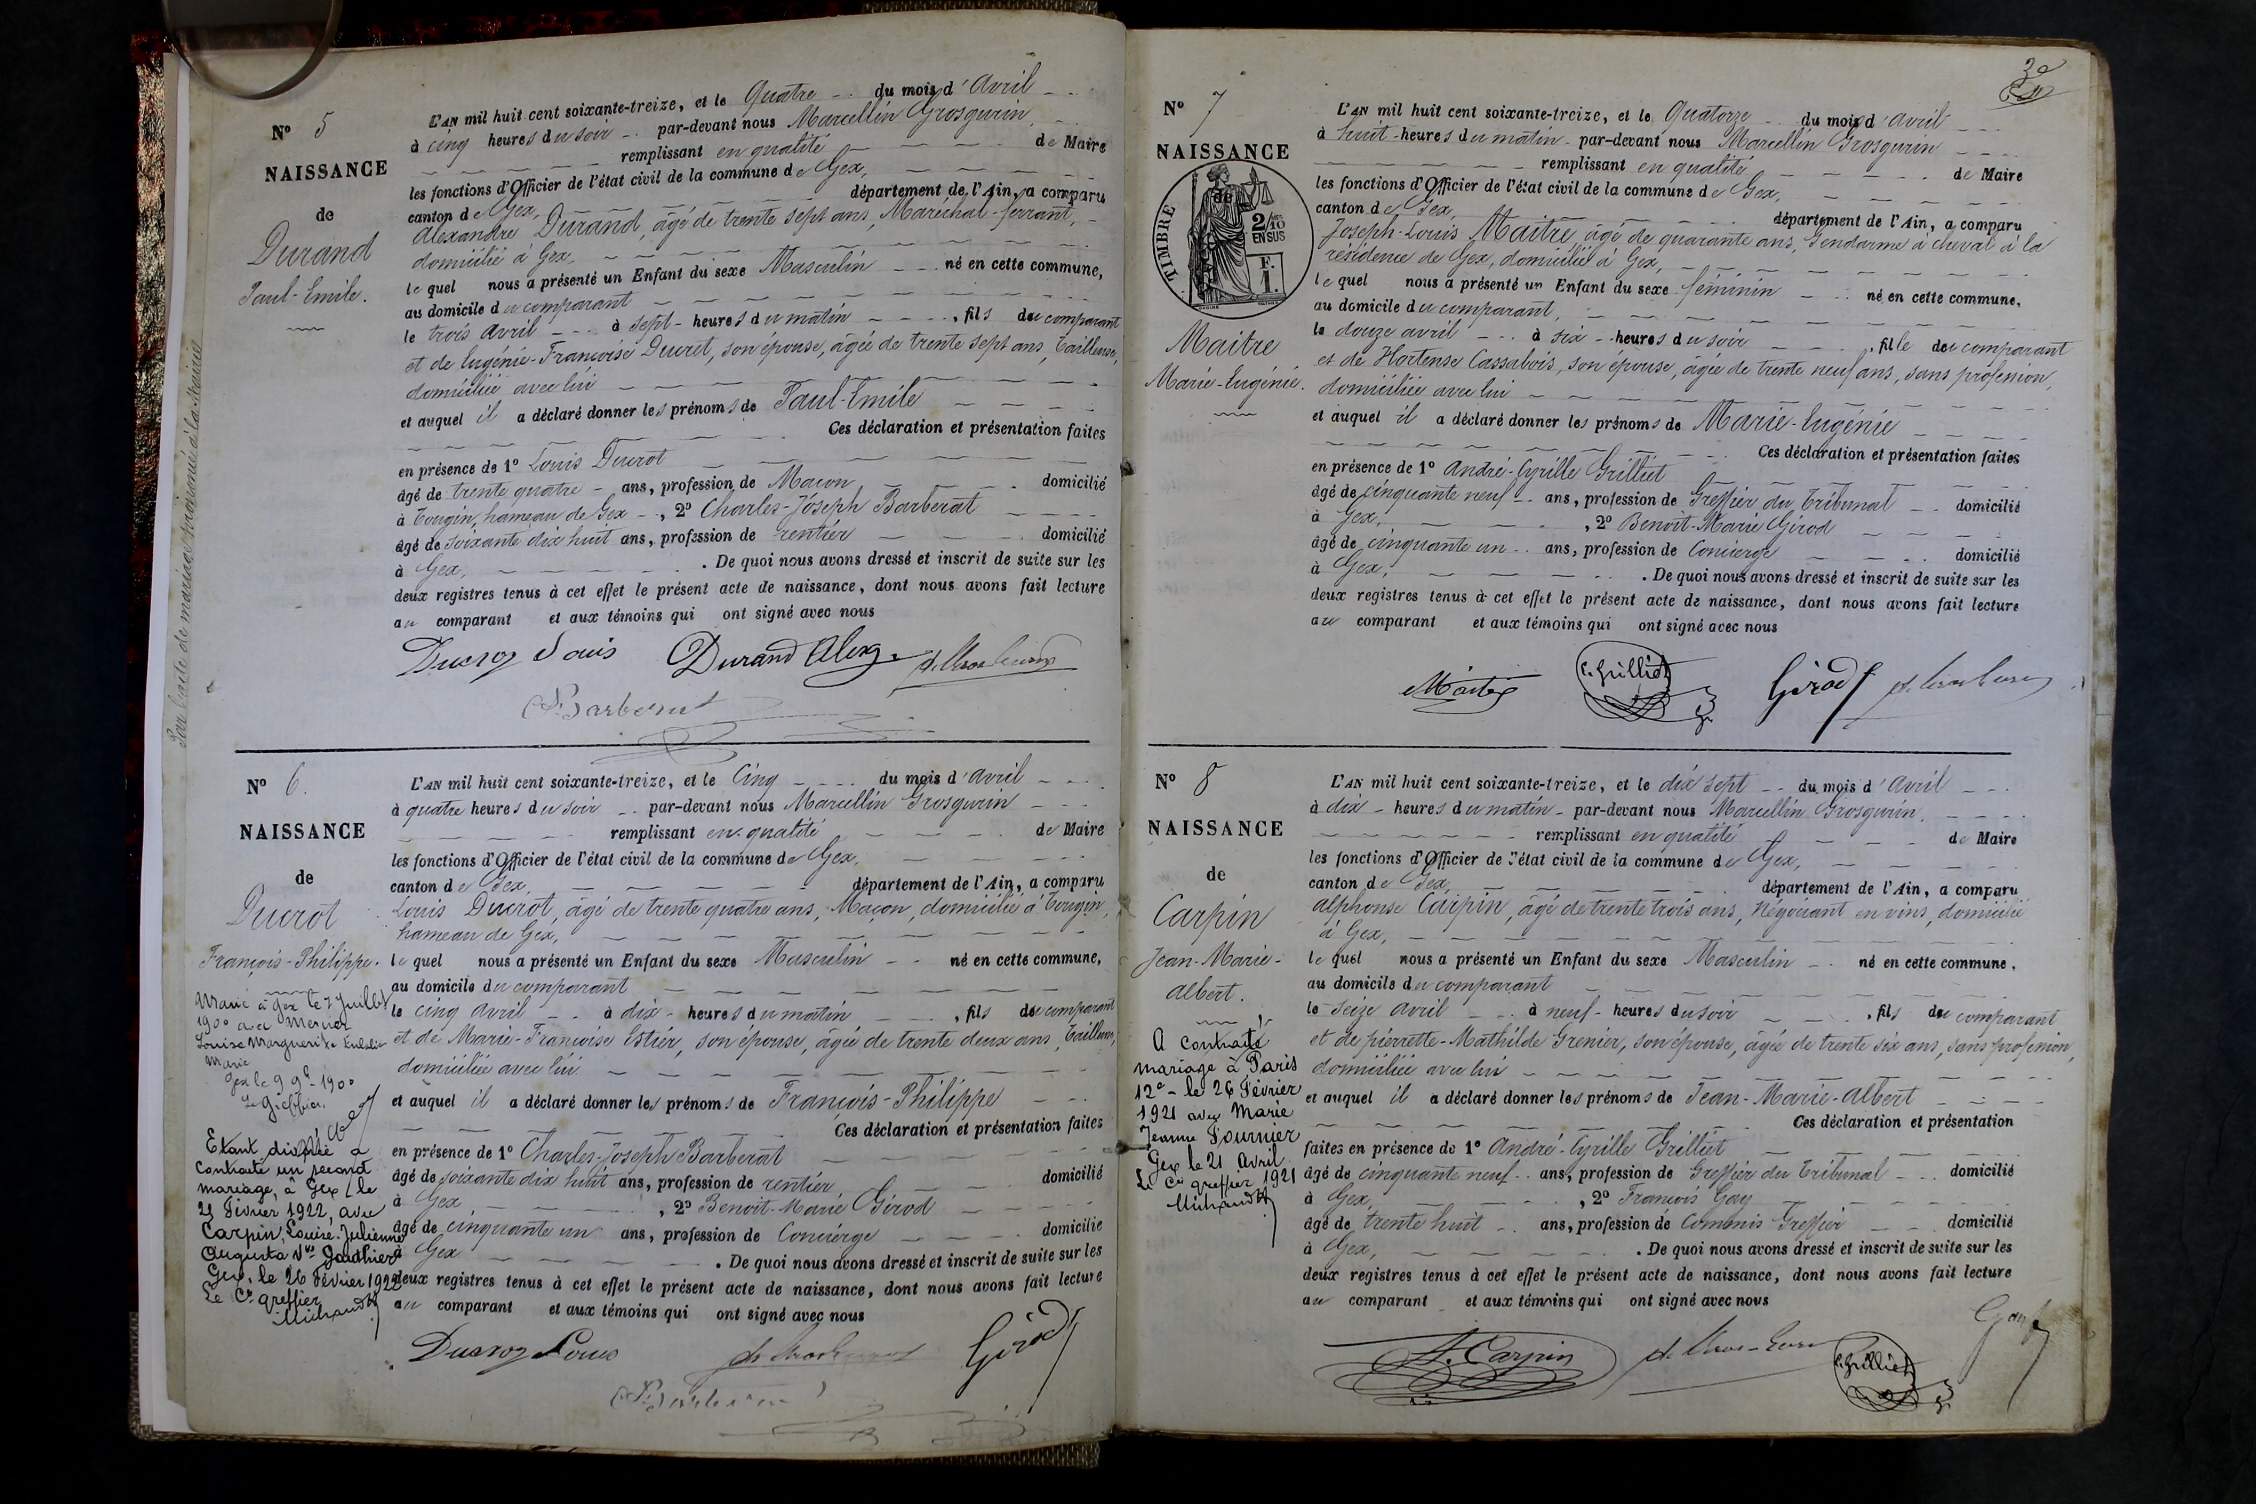 Nº 5
NAISSANCE
de
Durand
Paul-Emile.
L'AN mil huit cent soixante-treize, et le Quatre du mois d'Avril
à cinq heures du soir par-devant nous Marcellin Grosgurin,
remplissant en qualité de Maire
les fonctions d'Officier de l'état civil de la commune de Gex,
canton de Gex, département de l'Ain, a comparu
Alexandre Durand, âgé de trente sept ans, Maréchal-ferrant,
domicilié à Gex,
lequel nous a présenté un Enfant du sexe Masculin né en cette commune,
au domicile du comparant
le trois Avril à sept heures du matin, fils du comparant
et de Eugénie-Françoise Ducret, son épouse, âgée de trente sept ans, Tailleuse,
domiciliée avec lui
et auquel il a déclaré donner les prénoms de Paul-Emile
Ces déclaration et présentation faites
en présence de 1º Louis Ducrot
âgé de trente quatre ans, profession de Maçon, domicilié
à Tougin, hameau de Gex, 2º Charles-Joseph Barberat
âgé de soixante dix huit ans, profession de rentier domicilié
à Gex, . De quoi nous avons dressé et inscrit de suite sur les
deux registres tenus à cet effet le présent acte de naissance, dont nous avons fait lecture
au comparant et aux témoins qui ont signé avec nous
Ducroz Louis Durand Alex
Barberat
Nº 6.
NAISSANCE
de
Ducrot
François-Philippe.
Marié à Gex le 7 Juillet
1900 avec Mercier
Louise Marguerite Eulalie
Marie
Gex le 9 1900
Le Greffier,
Etant divorcé a
contracté un second
mariage, à Gex, le
21 Février 1922, avec
Carpin, Louise-Julienne
Augusta Vve Gauthier
Gex, le 26 Février 1922
Le Cis greffier
Michaud
L'AN mil huit cent soixante-treize, et le Cinq du mois d'Avril
à quatre heures du soir par-devant nous Marcellin Grosgurin
remplissant en qualité de Maire
les fonctions d'Officier de l'état civil de la commune de Gex,
canton de Gex, département de l'Ain, a comparu
Louis Ducrot, âgé de trente quatre ans, Maçon, domicilié à Tougin,
hameau de Gex,
lequel nous a présenté un Enfant du sexe Masculin né en cette commune,
au domicile du comparant
le cinq avril à dix heures du matin, fils du comparant
et de Marie-Françoise Estier, son épouse, âgée de trente deux ans, Tailleuse,
domiciliée avec lui
et auquel il a déclaré donner les prénoms de François-Philippe
Ces déclaration et présentation faites
en présence de 1º Charles-Joseph Barberat
âgé de soixante dix huit ans, profession de rentier, domicilié
à Gex, 2º Benoit-Marie Girod
âgé de cinquante un ans, profession de Concierge domicilié
à Gex . De quoi nous avons dressé et inscrit de suite sur les
deux registres tenus à cet effet le présent acte de naissance, dont nous avons fait lecture
au comparant et aux témoins qui ont signé avec nous
Ducroz Louis Girod
Nº 7
NAISSANCE
de
TIMBRE
2/10
EN SUS
F.
1.
Maitre
Marie-Eugénie.
L'AN mil huit cent soixante-treize, et le Quatorze du mois d'avril
à huit heures du matin par-devant nous Marcellin Grosgurin
remplissant en qualité de Maire
les fonctions d'Officier de l'état civil de la commune de Gex,
canton de Gex, département de l'Ain, a comparu
Joseph-Louis Maitre âgé de quarante ans, Gendarme à cheval à la
résidence de Gex, domicilié à Gex,
lequel nous a présenté un Enfant du sexe féminin né en cette commune,
au domicile du comparant,
le douze avril à six heures du soir, fille du comparant
et de Hortense Cassabois, son épouse, âgée de trente neuf ans, sans profession,
domiciliée avec lui
et auquel il a déclaré donner les prénoms de Marie-Eugénie
Ces déclaration et présentation faites
en présence de 1º André-Cyrille Grilliet
âgé de cinquante neuf ans, profession de Greffier du Tribunal domicilié
à Gex, 2º Benoit-Marie Girod
âgé de cinquante un ans, profession de Concierge domicilié
à Gex, . De quoi nous avons dressé et inscrit de suite sur les
deux registres tenus à cet effet le présent acte de naissance, dont nous avons fait lecture
au comparant et aux témoins qui ont signé avec nous
Maitre C. Grilliet Girod
Nº 8
NAISSANCE
de
Carpin
Jean-Marie-
Albert.
A contracté
mariage à Paris
12e - le 26 Février
1921 avec Marie
Jeanne Fournier
Gex le 21 Avril
1921
Le Cis greffier
Michaud
L'AN mil huit cent soixante-treize, et le dix sept du mois d'Avril
à dix heures du matin par-devant nous Marcellin Grosgurin,
remplissant en qualité de Maire
les fonctions d'Officier de l'état civil de la commune de Gex,
canton de Gex, département de l'Ain, a comparu
Alphonse Carpin, âgé de trente trois ans, Négociant en vins, domicilié
à Gex,
lequel nous a présenté un Enfant du sexe Masculin né en cette commune,
au domicile du comparant
le seize avril à neuf heures du soir, fils du comparant
et de pierrette-Mathilde Grenier, son épouse, âgée de trente six ans, sans profession,
domiciliée avec lui
et auquel il a déclaré donner les prénoms de Jean-Marie-Albert
Ces déclaration et présentation
faites en présence de 1º André-Cyrille Grilliet
âgé de cinquante neuf ans, profession de Greffier du Tribunal domicilié
à Gex, 2º François Gay
âgé de trente huit ans, profession de Commis Greffier domicilié
à Gex, . De quoi nous avons dressé et inscrit de suite sur les
deux registres tenus à cet effet le présent acte de naissance, dont nous avons fait lecture
au comparant et aux témoins qui ont signé avec nous
A. Carpin C. Grilliet Gay